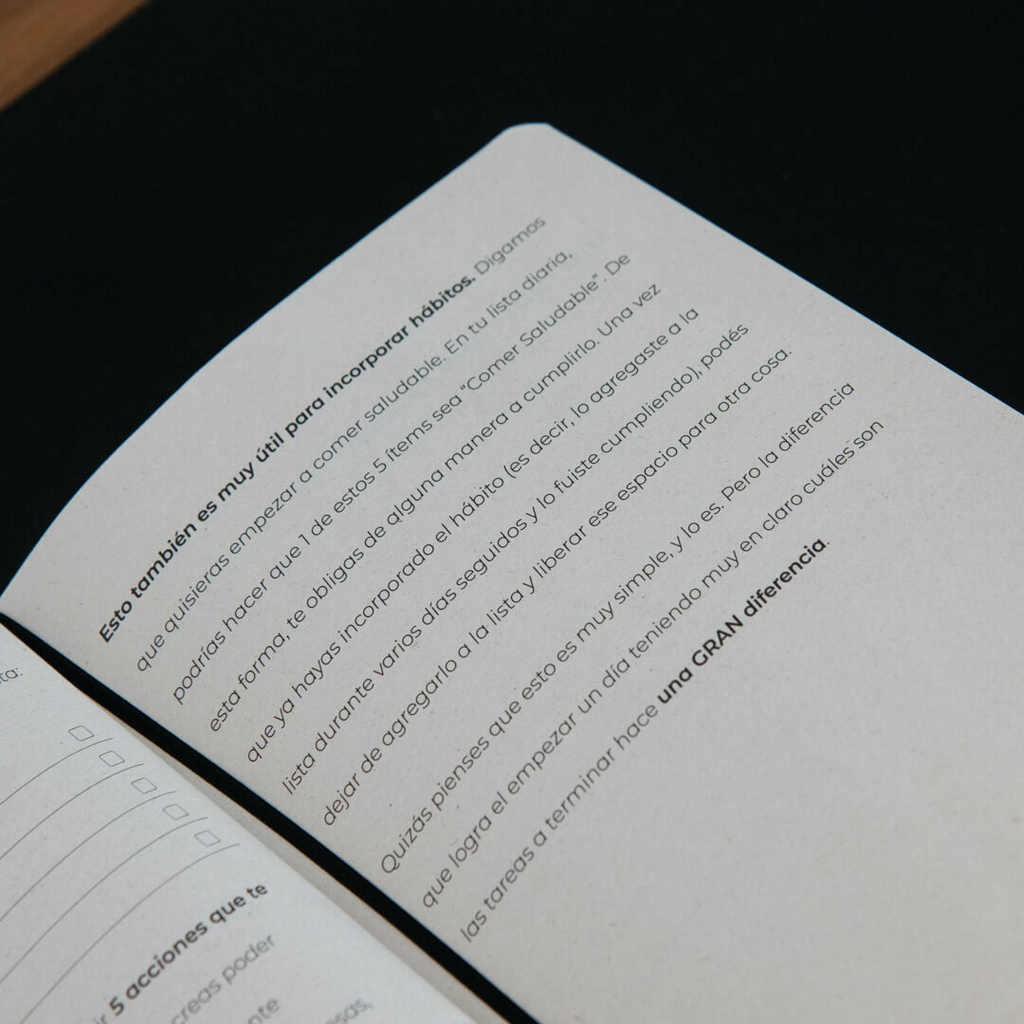 ta:
5 acciones que te
creas poder
Esto también es muy útil para incorporar hábitos. Digamos
que quisieras empezar a comer saludable. En tu lista diaria,
podrías hacer que 1 de estos 5 ítems sea “Comer Saludable”. De
esta forma, te obligas de alguna manera a cumplirlo. Una vez
que ya hayas incorporado el hábito (es decir, lo agregaste a la
lista durante varios días seguidos y lo fuiste cumpliendo), podés
dejar de agregarlo a la lista y liberar ese espacio para otra cosa.
Quizás pienses que esto es muy simple, y lo es. Pero la diferencia
que logra el empezar un día teniendo muy en claro cuáles son
las tareas a terminar hace una GRAN diferencia.